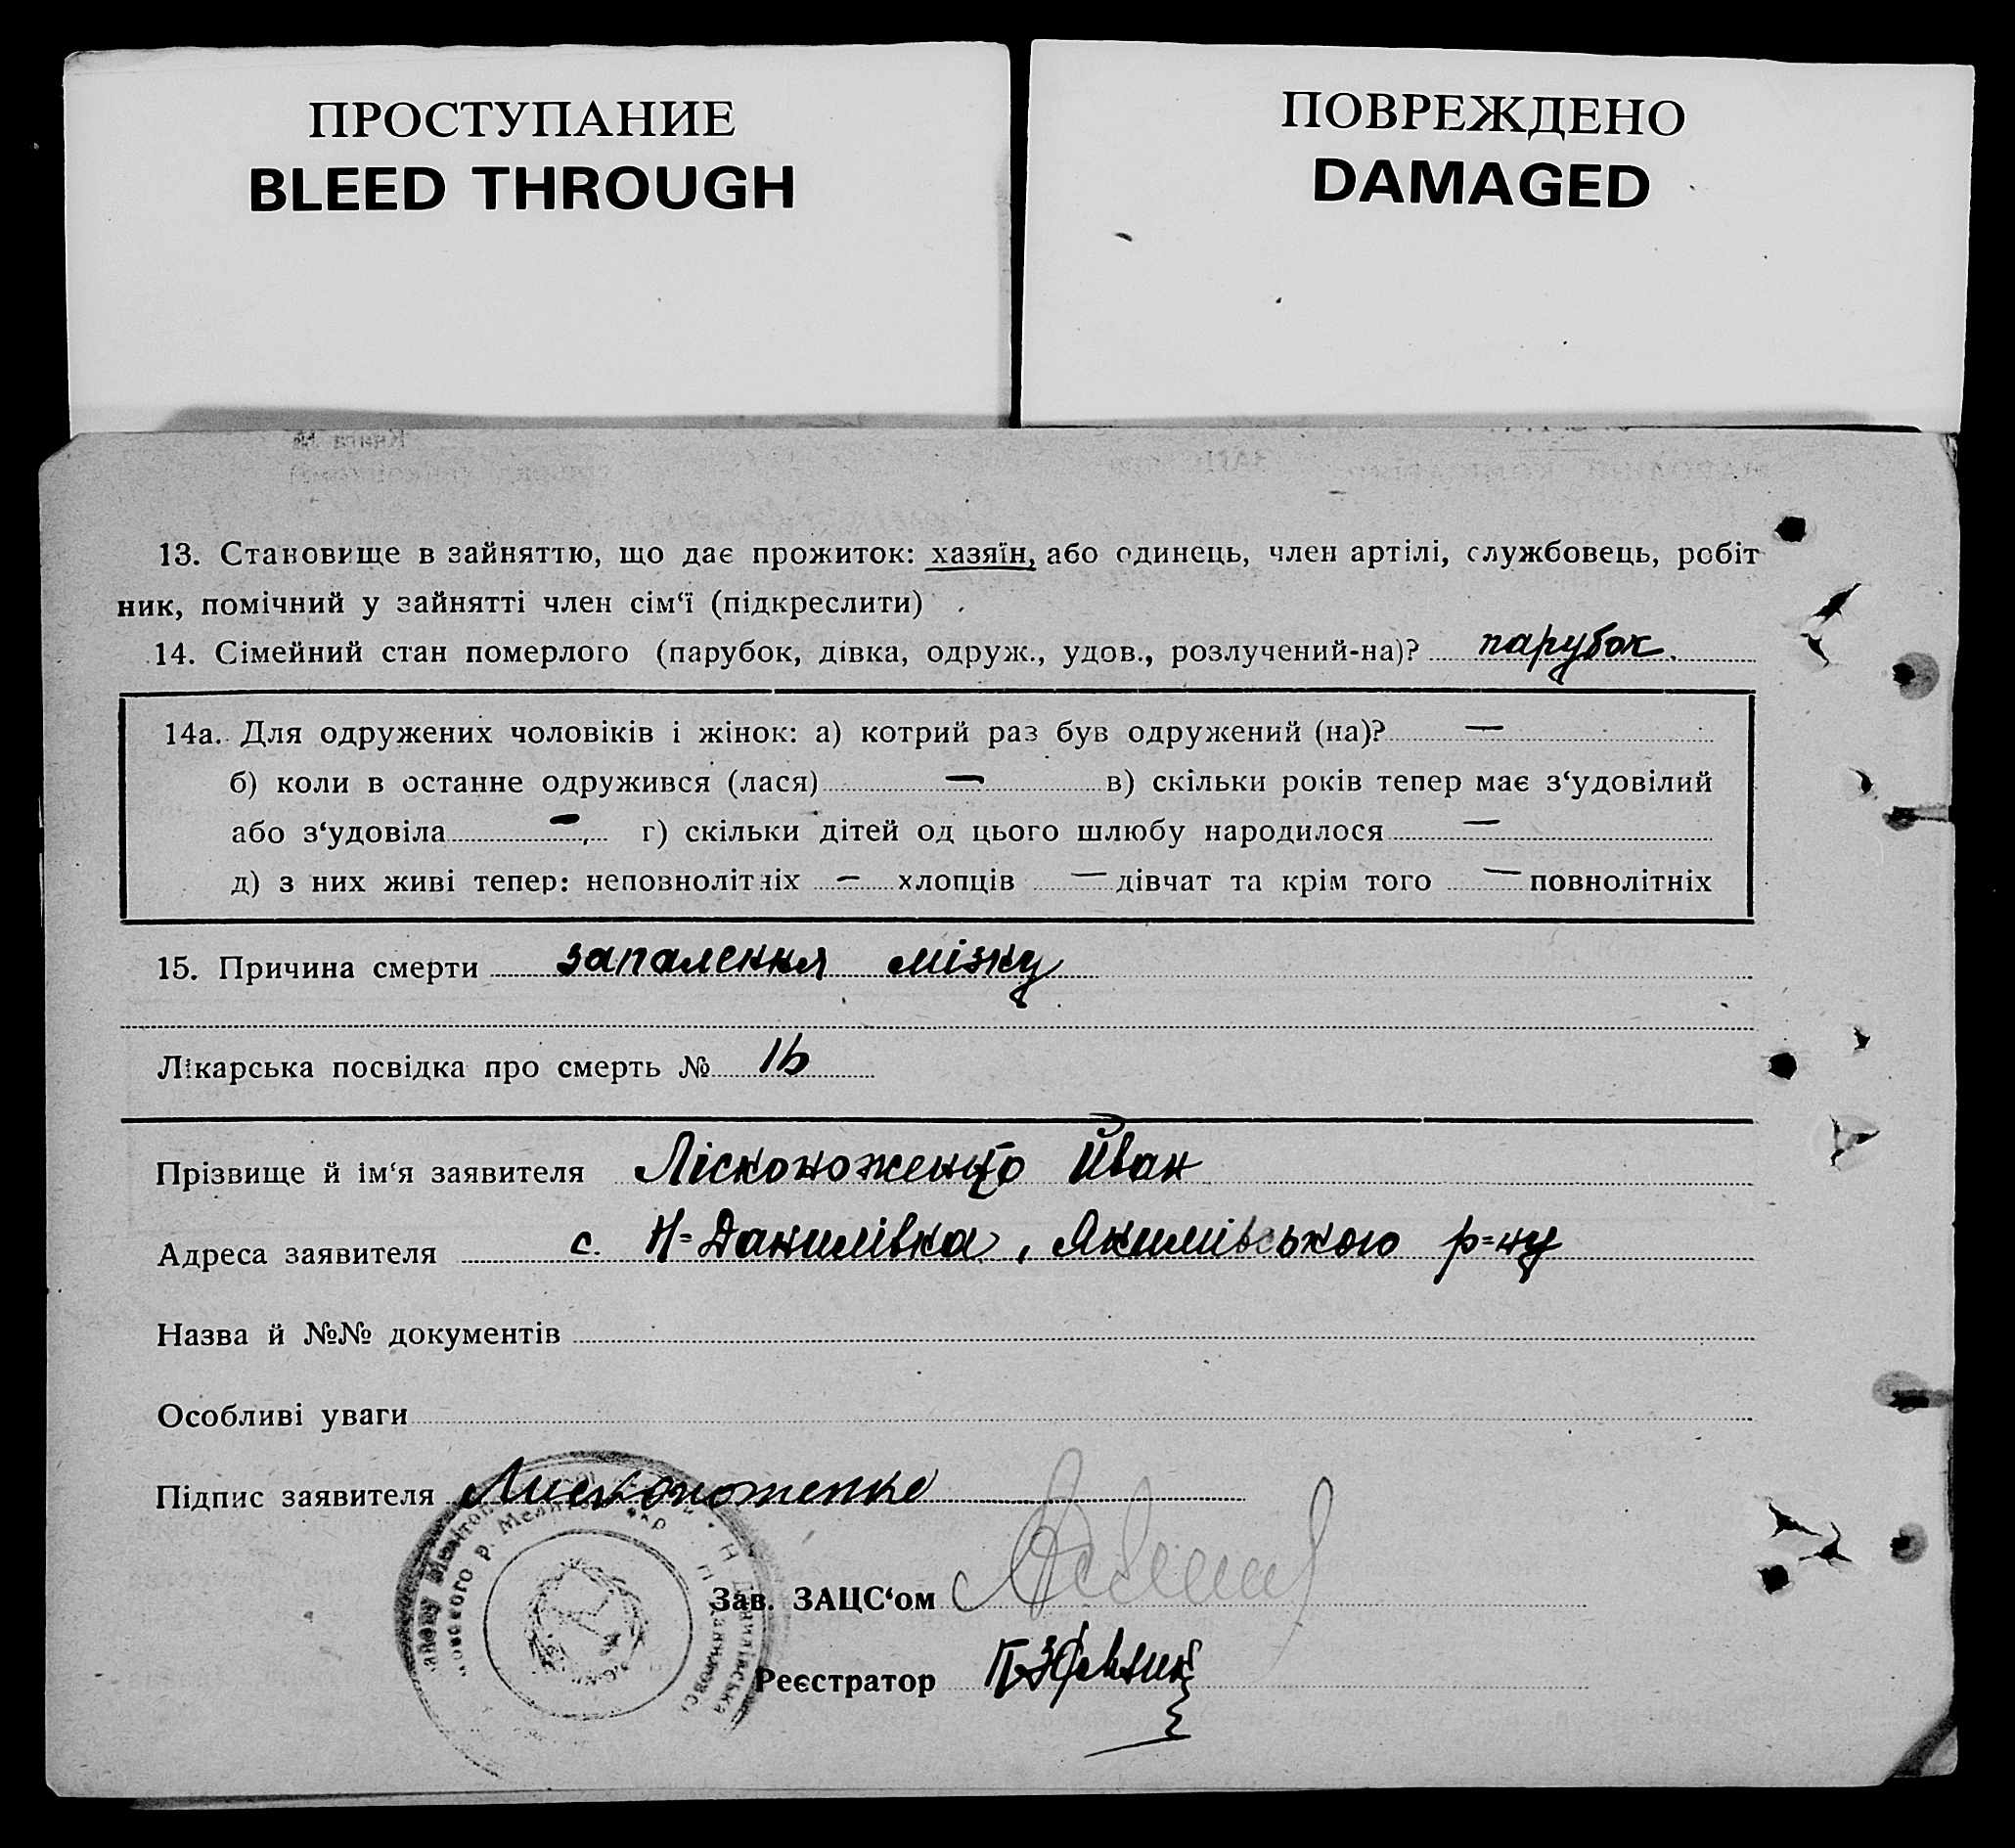 ПРОСТУПАНИЕ
BLEED THROUGH
ПОВРЕЖДЕНО
DAMAGED
13. Становище в зайняттю, що дає прожиток: хазяїн, або одинець, член артілі, службовець, робіт
ник, помічний у зайнятті член сім‘ї (підкреслити)
14. Сімейний стан померлого (парубок, дівка, одруж., удов., розлучений-на)? парубок.
14а. Для одружених чоловіків і жінок: а) котрий раз був одружений (на)? —
б) коли в останне одружився (лася) — в) скільки років тепер має з‘удовілий
або з‘удовіла — г) скільки дітей од цього шлюбу народилося —
д) з них живі тепер: неповнолітніх — хлопців — дівчат та крім того — повнолітніх
15. Причина смерти запалення мізку
Лікарська посвідка про смерть № 16
Прізвище й ім‘я заявителя Лісконоженко Йван
Адреса заявителя с. Н=Данилівка, Якимівського р=ну
Назва й №№ документів
Особливі уваги
Підпис заявителя Лисконоженко
Зав. ЗАЦС‘ом
Реєстратор